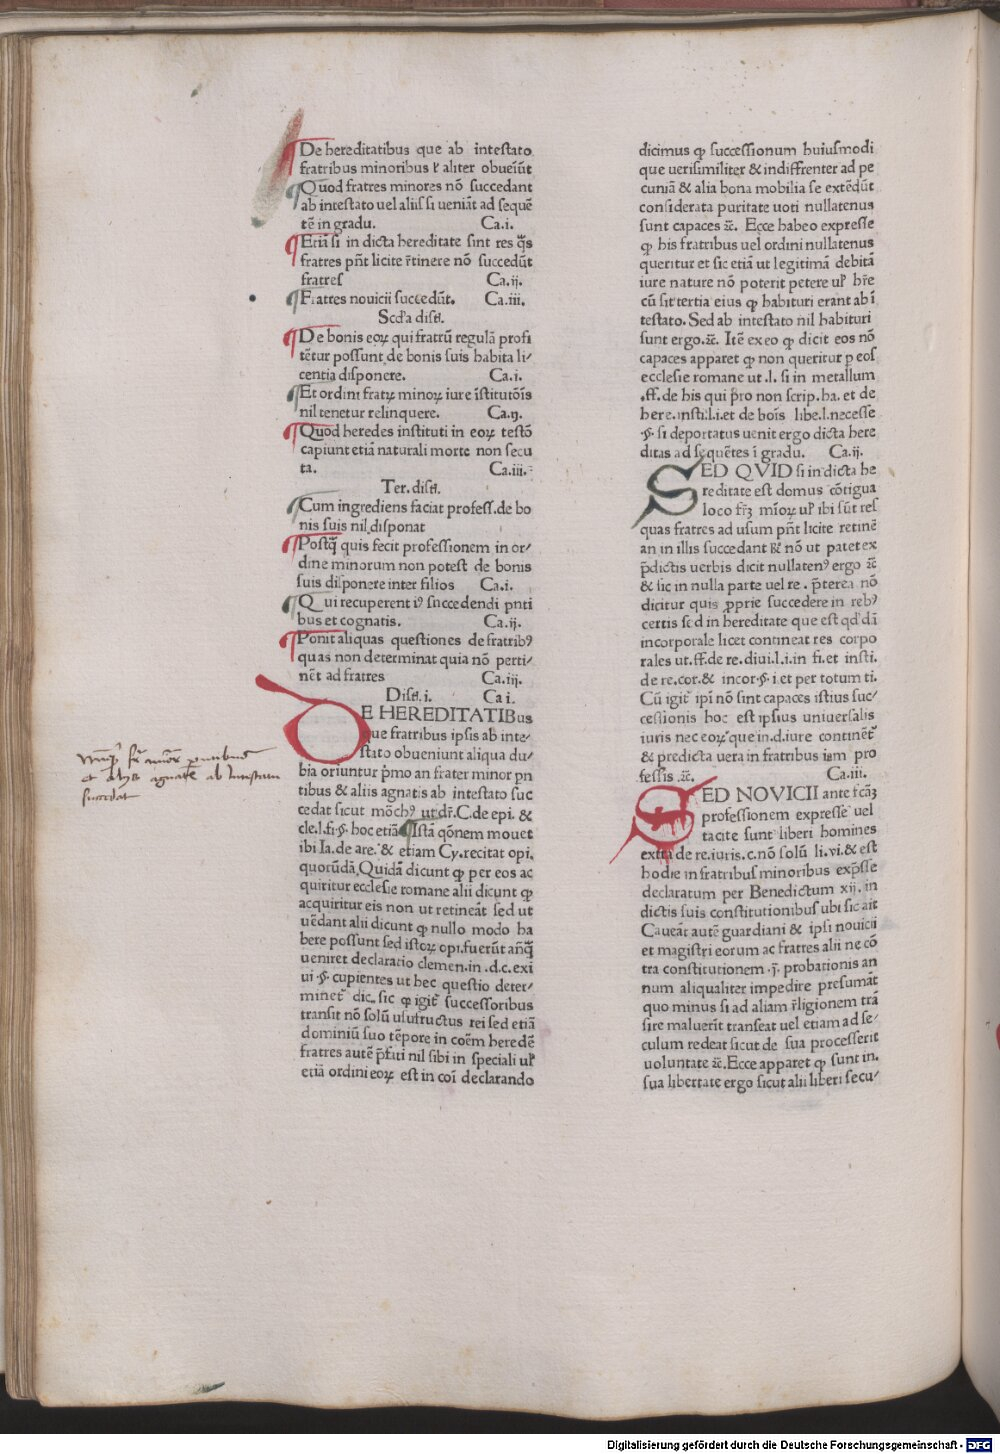 De hereditatibus que ab intestato
fratribus minoribus uꝉ aliter obueīūt
Quod fratres minores nō succedant
ab intestato uel aliis si ueniāt ad sequē
tē in gradu. Ca.i.
Etiā si in dicta hereditate sint res q̄s
fratres pn̄t licite r̄tinere nō succedūt
fratres Ca.ij.
Fratres nouicii succedūt. Ca.iii.
Scd̓a dist̄.
De bonis eoꝝ qui fratrū regulā profi
tētur possunt de bonis suis habita li/
centia disponere. Ca.i.
Et ordini fratꝝ minoꝝ iure īstitutōis
nil tenetur relinquere. Ca.ij.
Quod heredes instituti in eoꝝ testō
capiunt etiā naturali morte non secu
ta. Ca.iii.
Ter. dist̄.
Cum ingrediens faciat profess. de bo
nis suis nil disponat
Postq̄ quis fecit professionem in or/
dine minorum non potest de bonis
suis disponere inter filios Ca.i.
Qui recuperent iꝰ succedendi pnti
bus et cognatis. Ca.ij.
Ponit aliquas questiones de fratribꝰ
quas non determinat quia nō perti/
nēt ad fratres Ca.iij.
Dist̄. i. Ca i.
DE HEREDITATIBus
que fratribus ipsis ab inte/
stato obueniunt aliqua du/
bia oriuntur p̄mo an frater minor pn
tibus & aliis agnatis ab intestato suc
cedat sicut mōchꝰ ut dr̄. C. de epi. &
cle.l.fi.§. hoc etiā Istā qōnem mouet
ibi Ia. de are. & etiam Cy. recitat opi.
quorūdā, Quidā dicunt ꝙ per eos ac
quiritur ecclesie romane alii dicunt ꝙ
acquiritur eis non ut retineāt sed ut
uēdant alii dicunt ꝙ nullo modo ha
bere possunt sed istoꝝ opi. fuerūt an̄q̄
ueniret declaratio clemen. in .d.c.exi
ui §. cupientes ut hec questio deter/
minet̄ dic. sic ꝙ igit̄ successoribus
transit nō solū usufructus rei sed etiā
dominiū suo tēpore in coēm heredē
fratres autē p̄futi nil sibi in speciali uꝉ
etiā ordini eoꝝ est in coī declarando
dicimus ꝙ successionum huiusmodi
que uerisimiliter & indiffrenter ad pe
cuniā & alia bona mobilia se extēdūt
considerata puritate uoti nullatenus
sunt capaces ⁊c̄. Ecce habeo expresse
ꝙ his fratribus uel ordini nullatenus
queritur et sic etiā ut legitimā debitā
iure nature nō poterit petere uꝉ hr̄e
cū sit tertia eius ꝙ habituri erant ab ī
testato. Sed ab intestato nil habituri
sunt ergo. ⁊c̄. Itē ex eo ꝙ dicit eos nō
capaces apparet ꝙ non queritur p eos
ecclesie romane ut .l. si in metallum
.ff. de his qui p̄ro non scrip. ha. et de
here. insti.l.i. et de bōis libe.l. necesse
§. si deportatus uenit ergo dicta here
ditas ad sequētes ī gradu. Ca.ij.
SED QVID si in dicta he
reditate est domus cōtigua
loco fr̄ꝫ mīoꝝ uꝉ ibi sūt res
quas fratres ad usum pn̄t licite retinē
an in illis succedant & nō ut patet ex
p̄dictis uerbis dicit nullatenꝰ ergo ⁊c̄
& sic in nulla parte uel re . p̄terea nō
dicitur quis ꝓprie succedere in rebꝰ
certis sed in hereditate que est qd̓ dā
incorporale licet contineat res corpo
rales ut .ff. de re. diui.l.i. in fi. et insti.
de re. cor. & incor. §. i. et per totum ti.
Cū igit̄ ipī nō sint capaces istius suc/
cessionis hoc est ipsius uniuersalis
iuris nec eoꝝ que in .d. iure continēt̄
& predicta uera in fratribus ism pro
fessis .⁊c̄. Ca.iii.
SED NOVICII ante fcāꝫ
professionem expresse uel
tacite sunt liberi homines
extra de re. iuris. c. nō solū li. vi. & est
hodie in fratribus minoribus exp̄sse
declaratum per Benedictum xij. in
dictis suis constitutionibus ubi sic ait
Caueāt autē guardiani & ipsi nouicii
et magistri eorum ac fratres alii ne cō
tra constitutionem .j. probationis an
num aliqualiter impedire presumāt
quo minus si ad aliam r̄ligionem trā
sire maluerīt transeat uel etiam ad se/
culum redeat sicut de sua processerit
uoluntate ⁊c̄. Ecce apparet ꝙ sunt in.
sua libertate ergo sicut alii liberi secu/
et alijs agnatis ab intestato
succedat
Digitalisierung gefördert durch die Deutsche Forschungsgemeinschaft - DFG